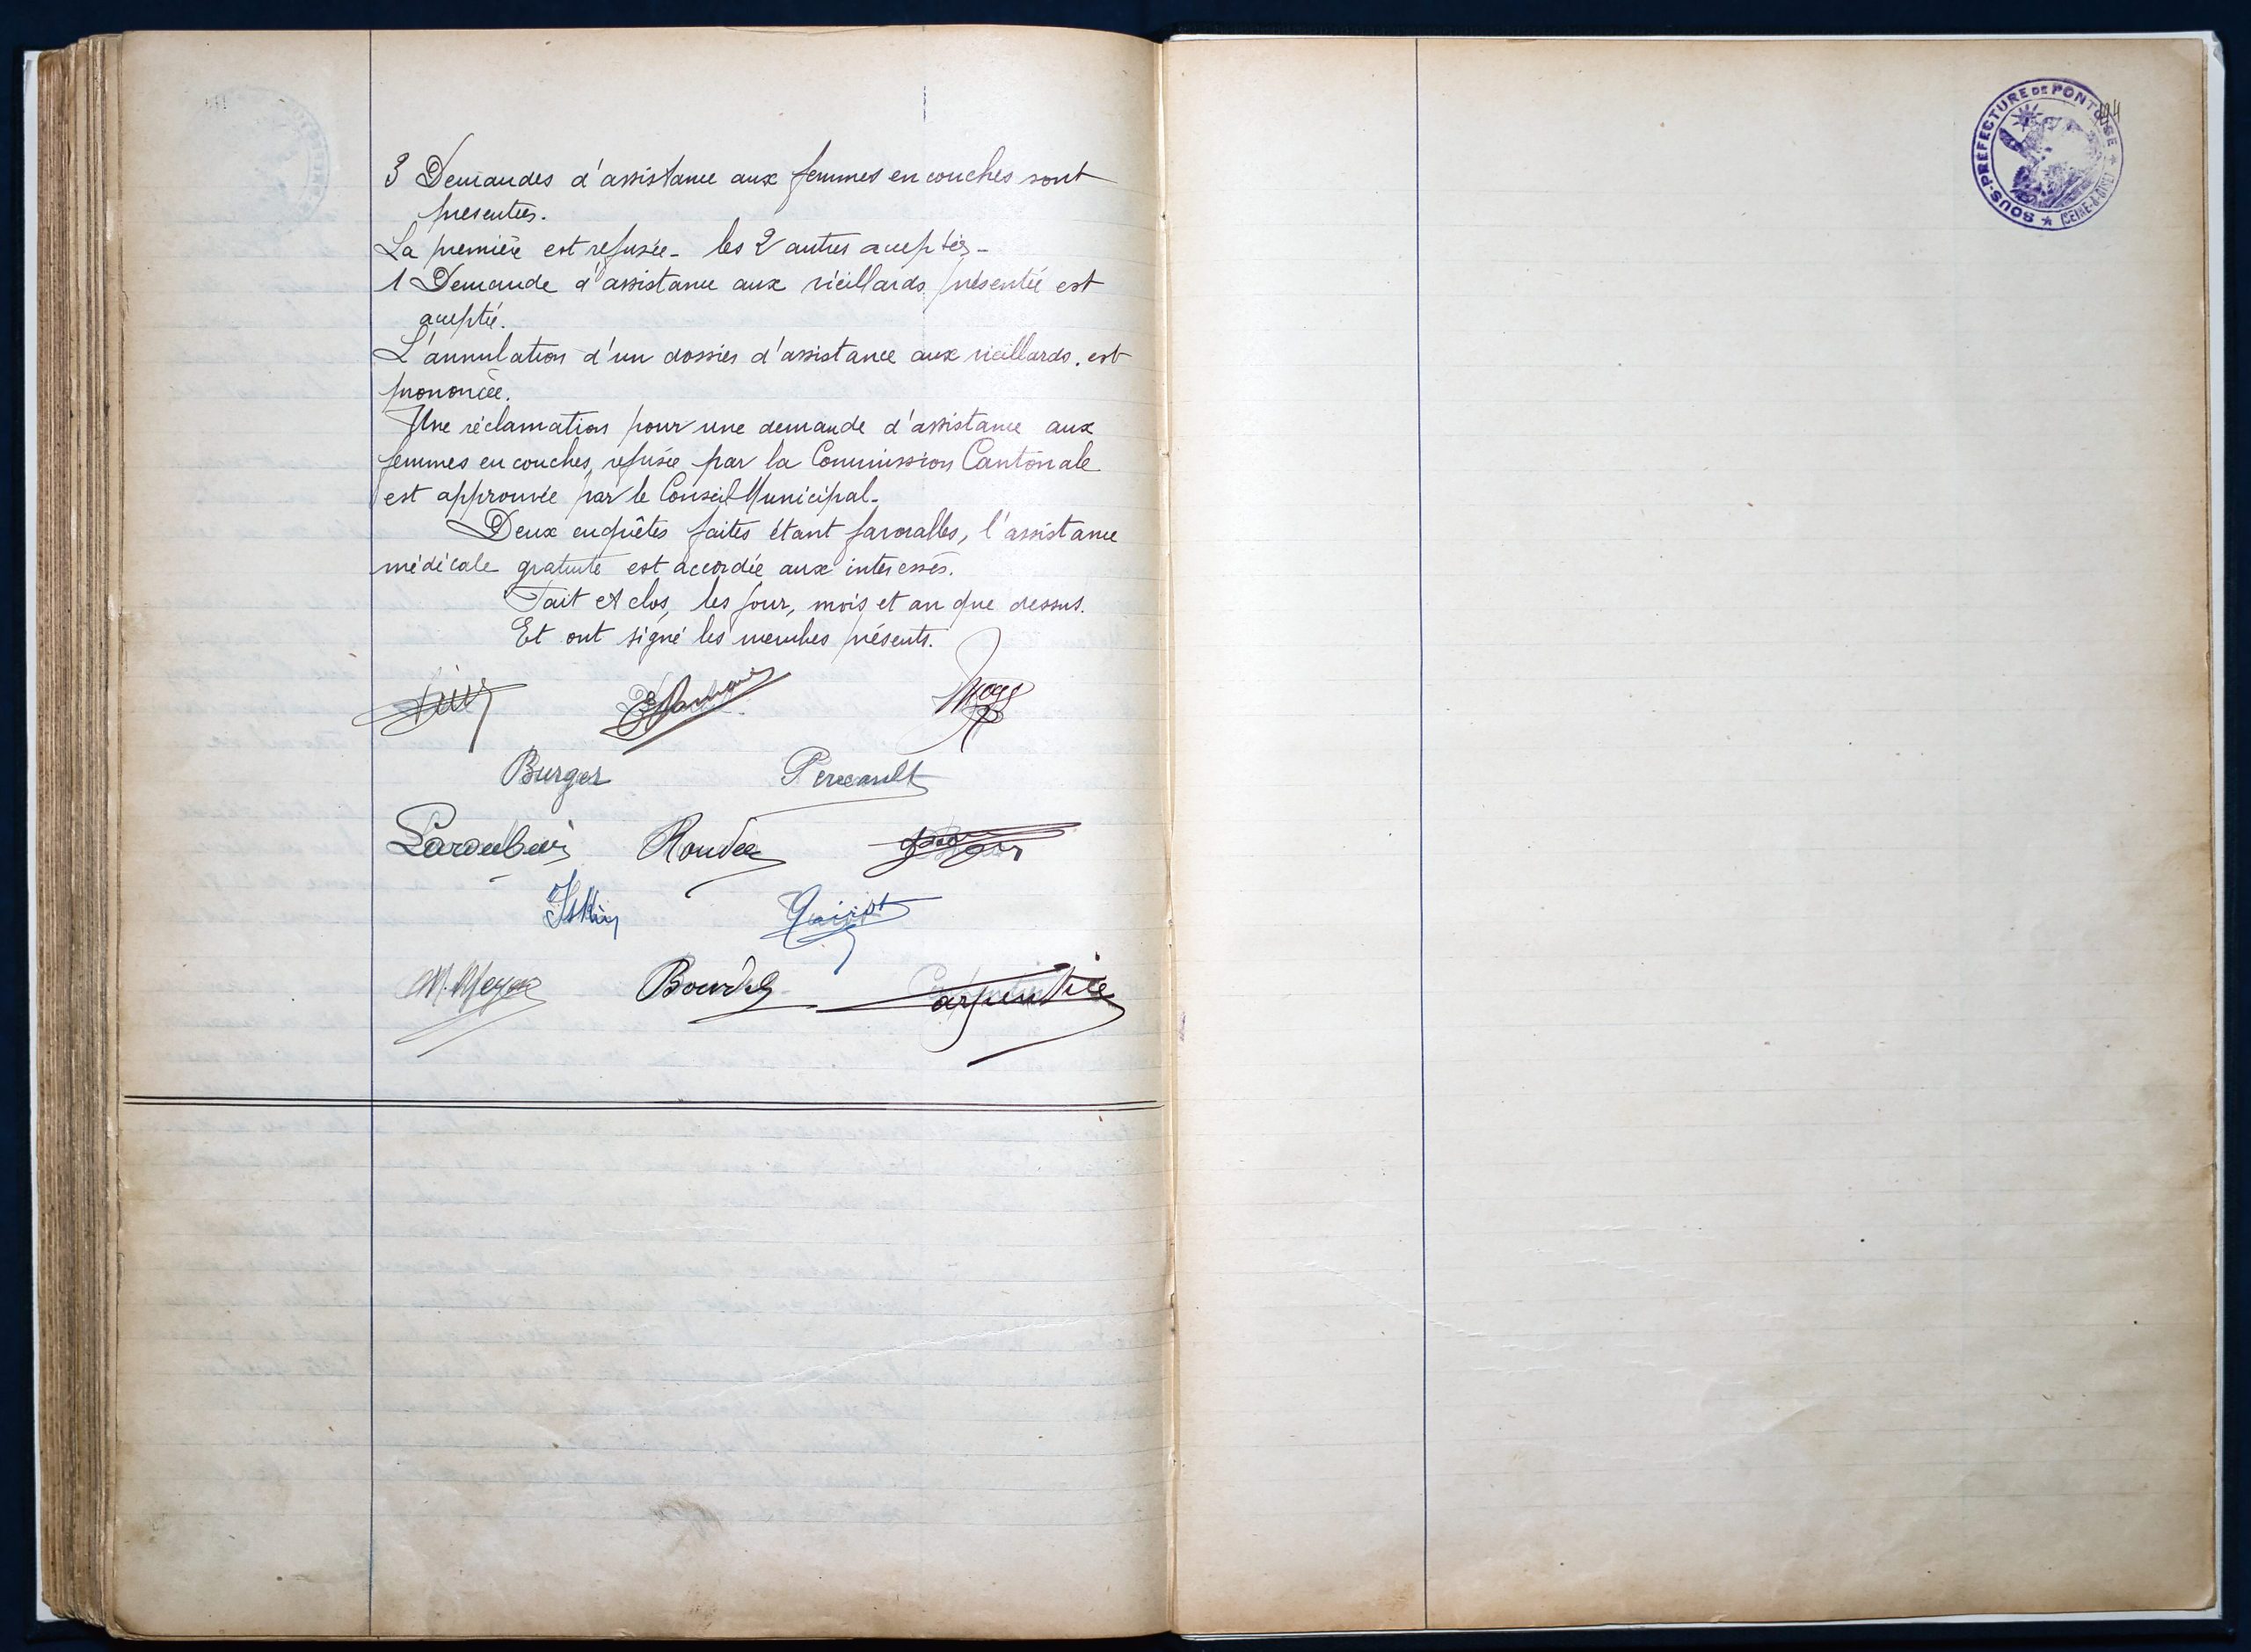 3 Demandes d'assistance aux femmes en couches sont
présentées.
La première est refusée - les 2 autres acceptées -
1 Demande d'assistance aux vieillards présentée est
acceptée.
L'annulation d'un dossier d'assistance aux vieillards. est
prononcée.
Une réclamation pour une demande d'assistance aux
femmes en couches, refusée par la Commission Cantonale
est approuvée par le Conseil Municipal.
Deux enquêtes faites étant favorables, l'assistance
médicale gratuite est accordée aux intéressés.
Fait et clos, les jour, mois et an que dessus.
Et ont signé les membres présents.
Burger Perreault
Roudee
M. Meyer Bourdel Carpentier
SOUS-PRÉFECTURE DE PONTOISE
(SEINE-&-OISE)